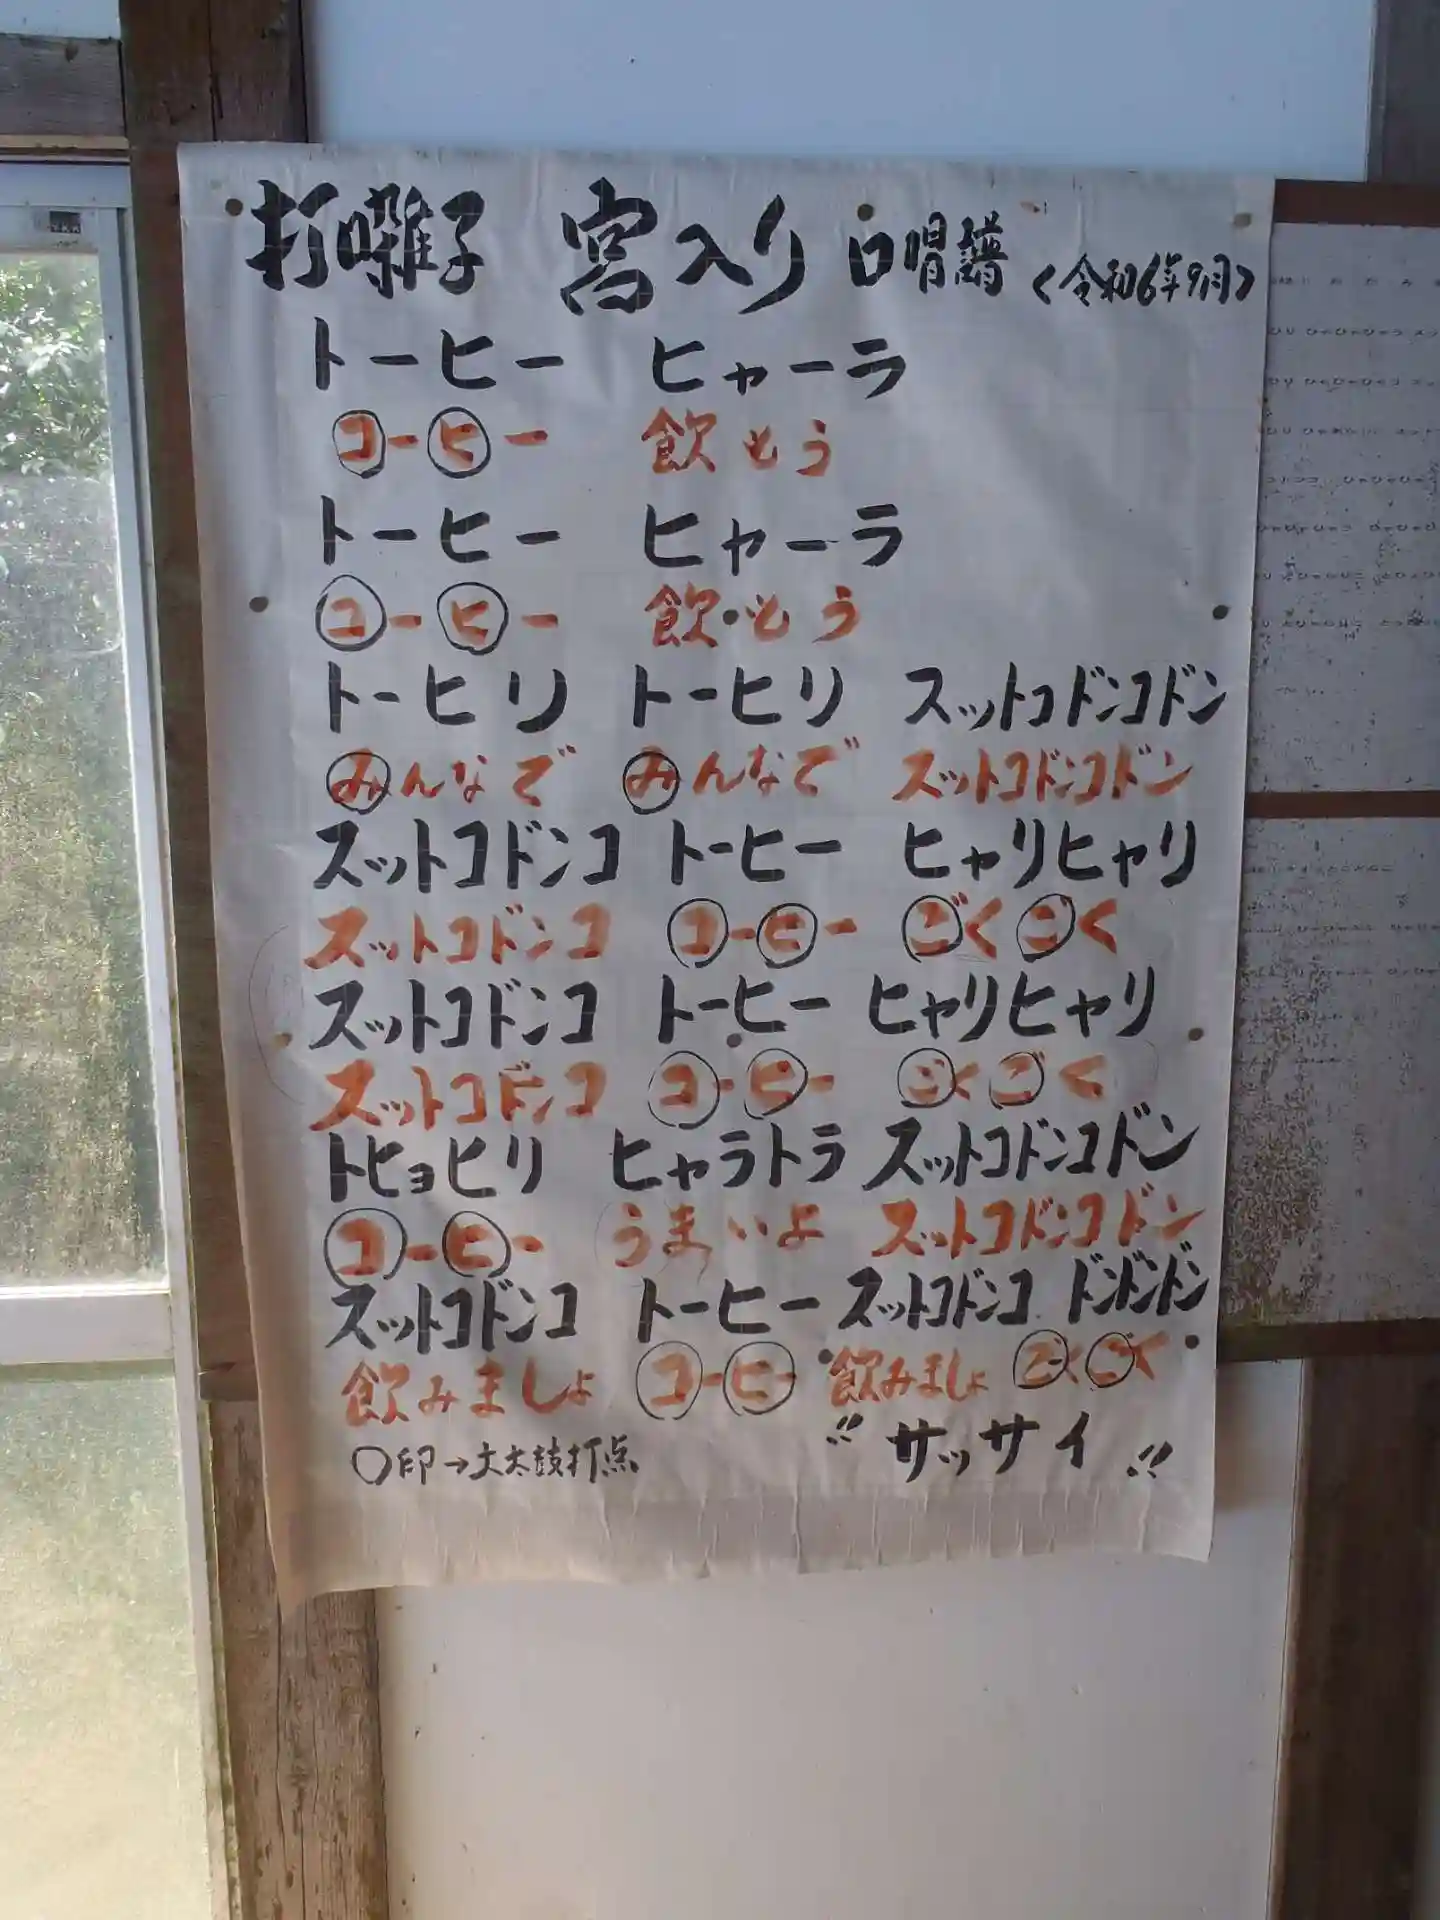 打囃子 宮入り 口唱譜 <令和6年9月>
トーヒー ヒャーラ
コーヒー 飲もう
トーヒー ヒャーラ
コーヒー 飲もう
トーヒリ トーヒリ スットコドンコドン
みんなで みんなで スットコドンコドン
スットコドンコ トーヒー ヒャリヒャリ
スットコドンコ コーヒー ごくごく
スットコドンコ トーヒー ヒャリヒャリ
スットコドンコ コーヒー ごくごく
トヒョヒリ ヒャラトラ スットコドンコドン
コーヒー うまいよ スットコドンコドン
スットコドンコ トーヒー スットコドンコ ドンドンドン
飲みましょ コーヒー 飲みましょ ごくごく
〇印→大太鼓打点 〃 サッサイ 〃